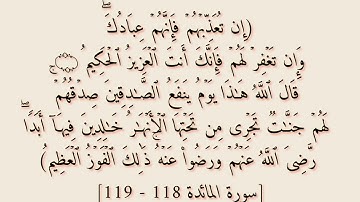 (إِن تُعَذِّبۡهُمۡ فَإِنَّهُمۡ عِبَادُكَۖ
وَإِن تَغۡفِرۡ لَهُمۡ فَإِنَّكَ أَنتَ ٱلۡعَزِيزُ ٱلۡحَكِيمُ ۝
قَالَ ٱللَّهُ هَٰذَا يَوۡمُ يَنفَعُ ٱلصَّٰدِقِينَ صِدۡقُهُمۡۚ
لَهُمۡ جَنَّٰتٞ تَجۡرِي مِن تَحۡتِهَا ٱلۡأَنۡهَٰرُ خَٰلِدِينَ فِيهَآ أَبَدٗاۖ
رَّضِيَ ٱللَّهُ عَنۡهُمۡ وَرَضُواْ عَنۡهُۚ ذَٰلِكَ ٱلۡفَوۡزُ ٱلۡعَظِيمُ)
[سورة المائدة 118 - 119]